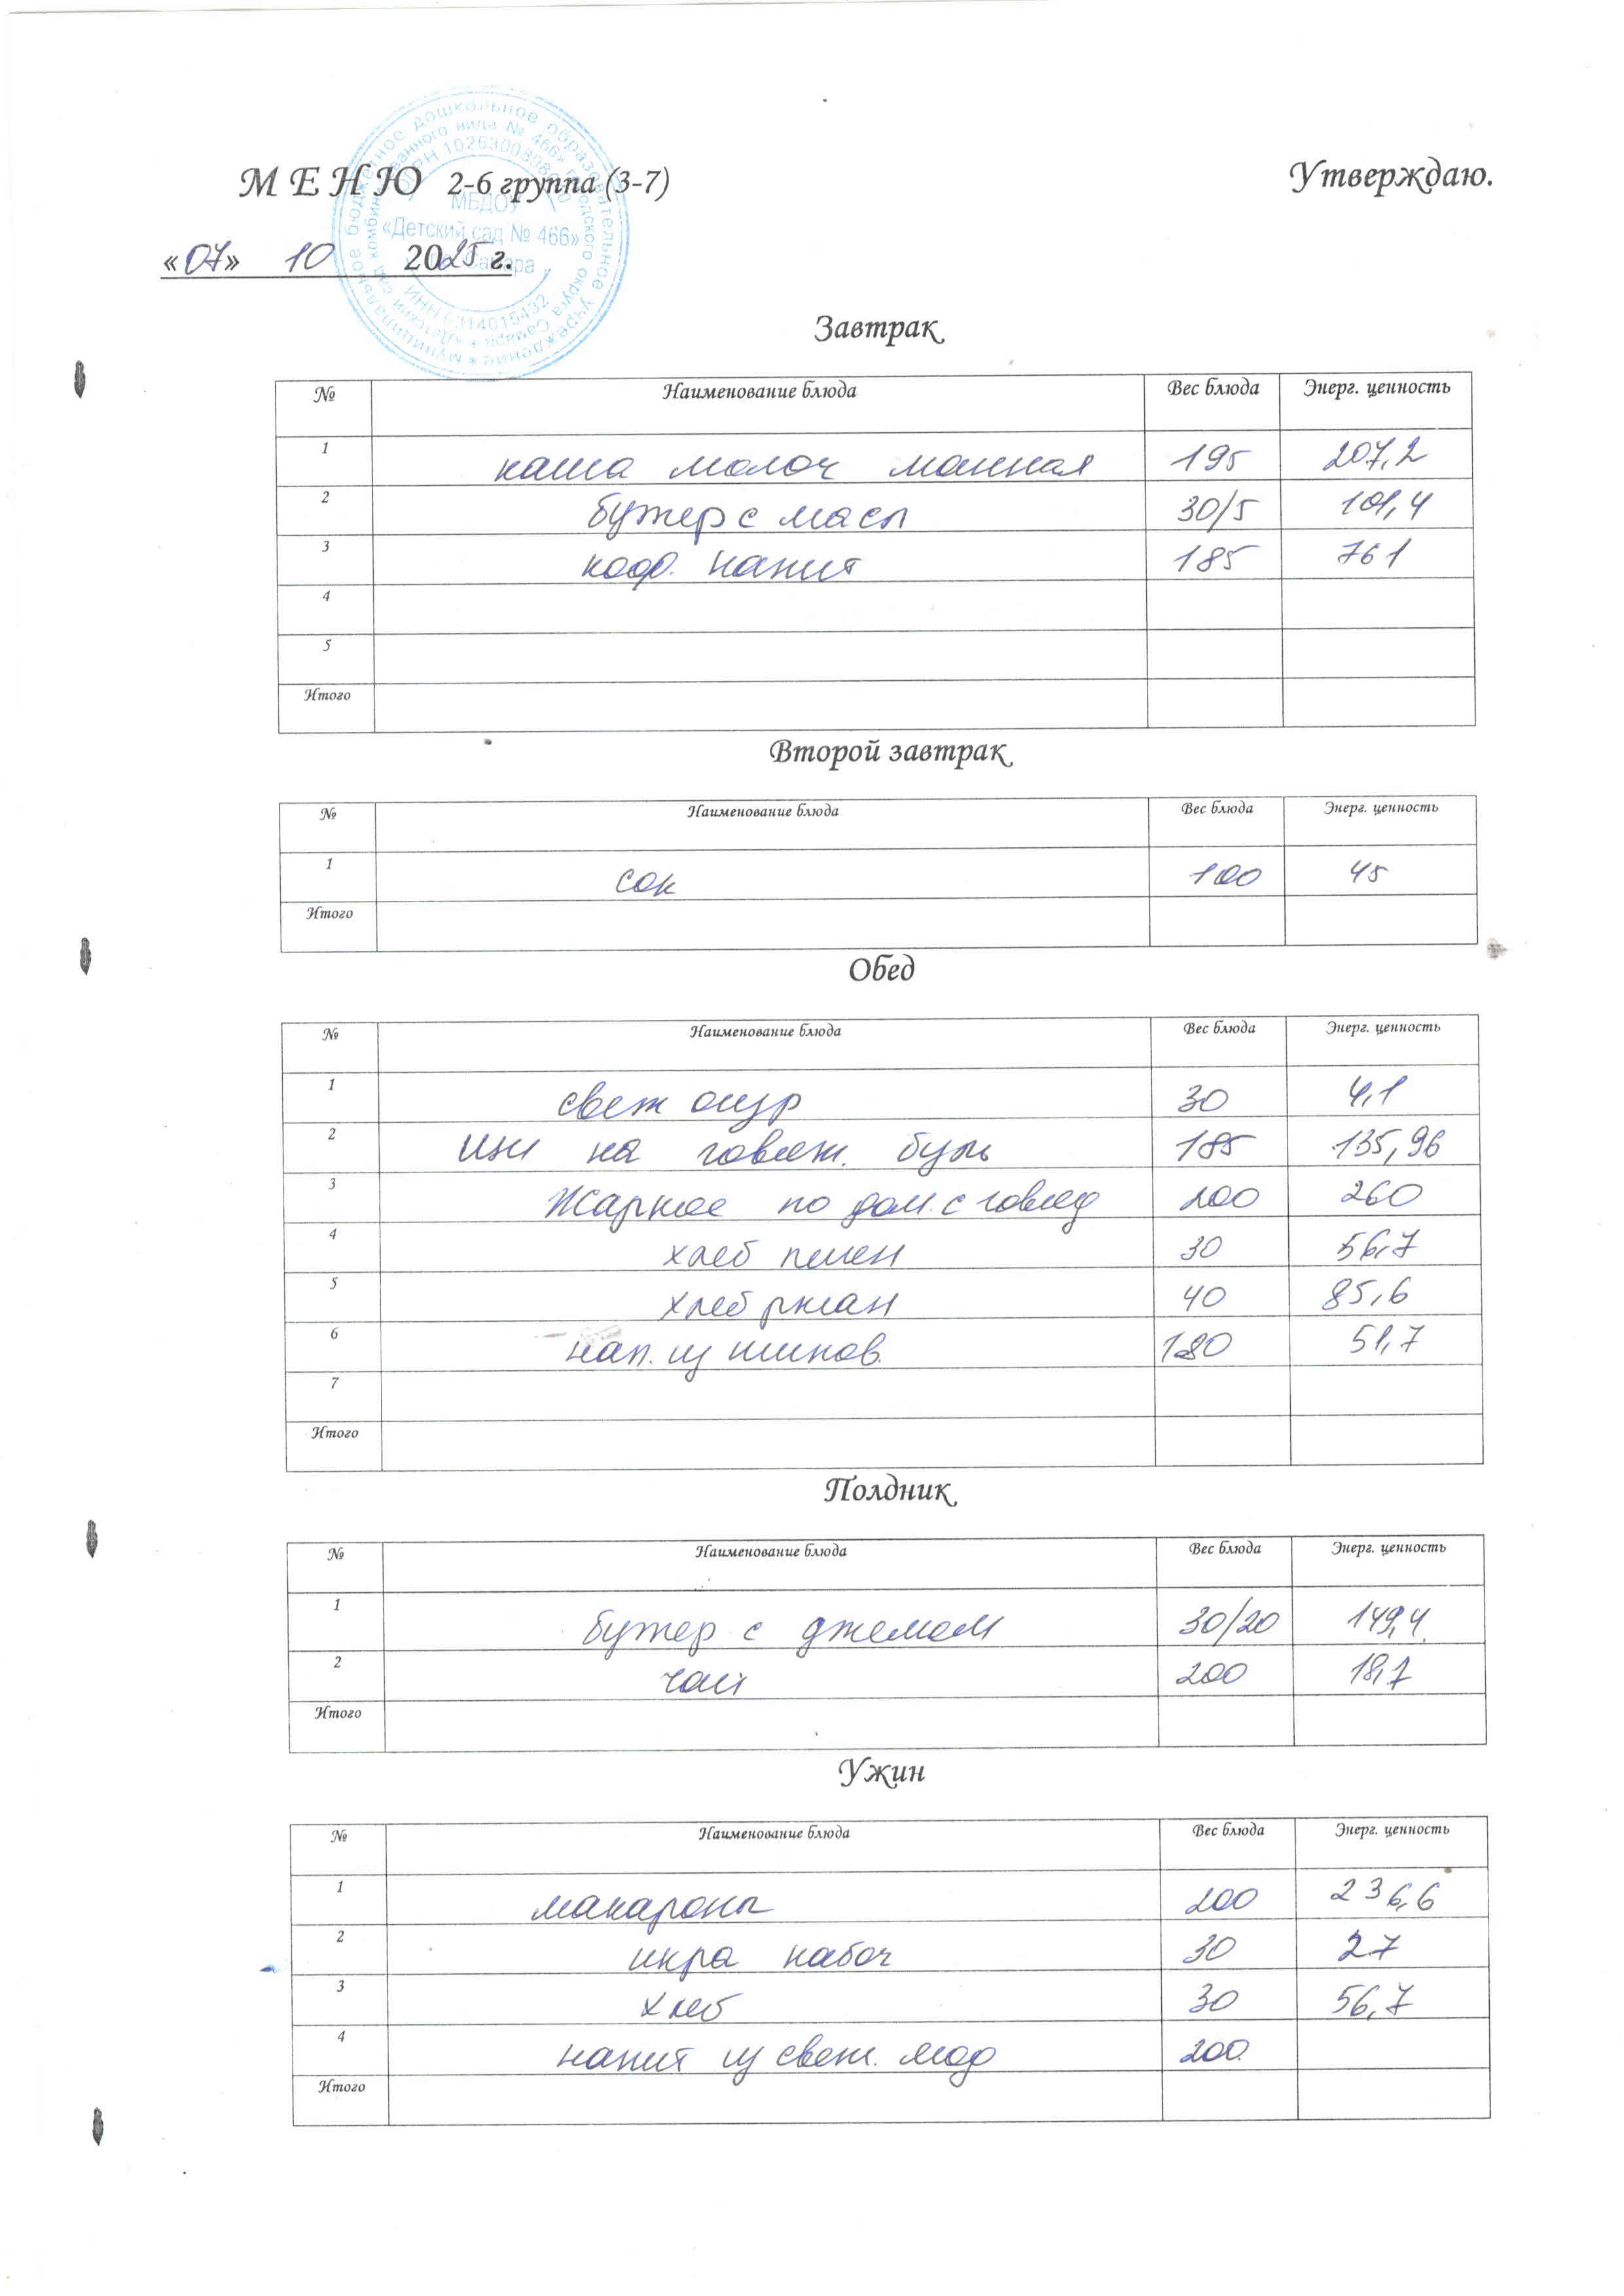 М Е Н Ю 2-6 группа (3-7)
Утверждаю.
«07» 10 2025 г.
МБДОУ
«Детский сад № 466»
Завтрак
№ Наименование блюда Вес блюда Энерг. ценность
1 каша молоч манная 195 207,2
2 бутер с масл 30/5 101,4
3 коф. напит 185 761
4
5
Итого
Второй завтрак
№ Наименование блюда Вес блюда Энерг. ценность
1 сок 100 45
Итого
Обед
№ Наименование блюда Вес блюда Энерг. ценность
1 свеж огур 30 4,1
2 щи на говяж. бул 185 135,96
3 Жаркое по дом. с говяд 200 260
4 хлеб пшен 30 56,7
5 хлеб ржан 40 85,6
6 нап. из шипов. 180 51,7
7
Итого
Полдник
№ Наименование блюда Вес блюда Энерг. ценность
1 бутер с джемом 30/20 149,4
2 чай 200 18,7
Итого
Ужин
№ Наименование блюда Вес блюда Энерг. ценность
1 макароны 200 236,6
2 икра кабач 30 27
3 хлеб 30 56,7
4 напит из свеж. яго 200
Итого